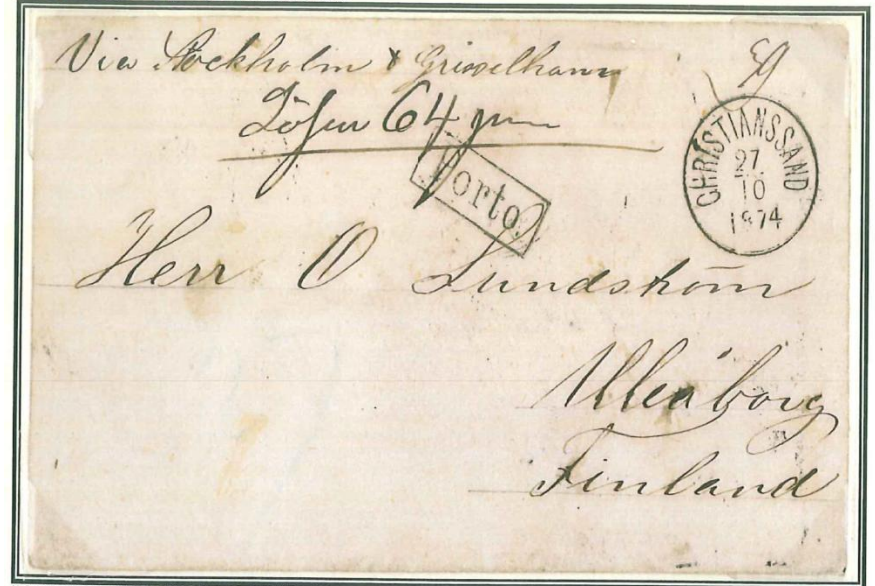 Via Stockholm & Grisselhamn
Lösen 64 pen
Porto
CHRISTIANSSAND
27
10
1874
Herr O Lundström
Uleåborg
Finland